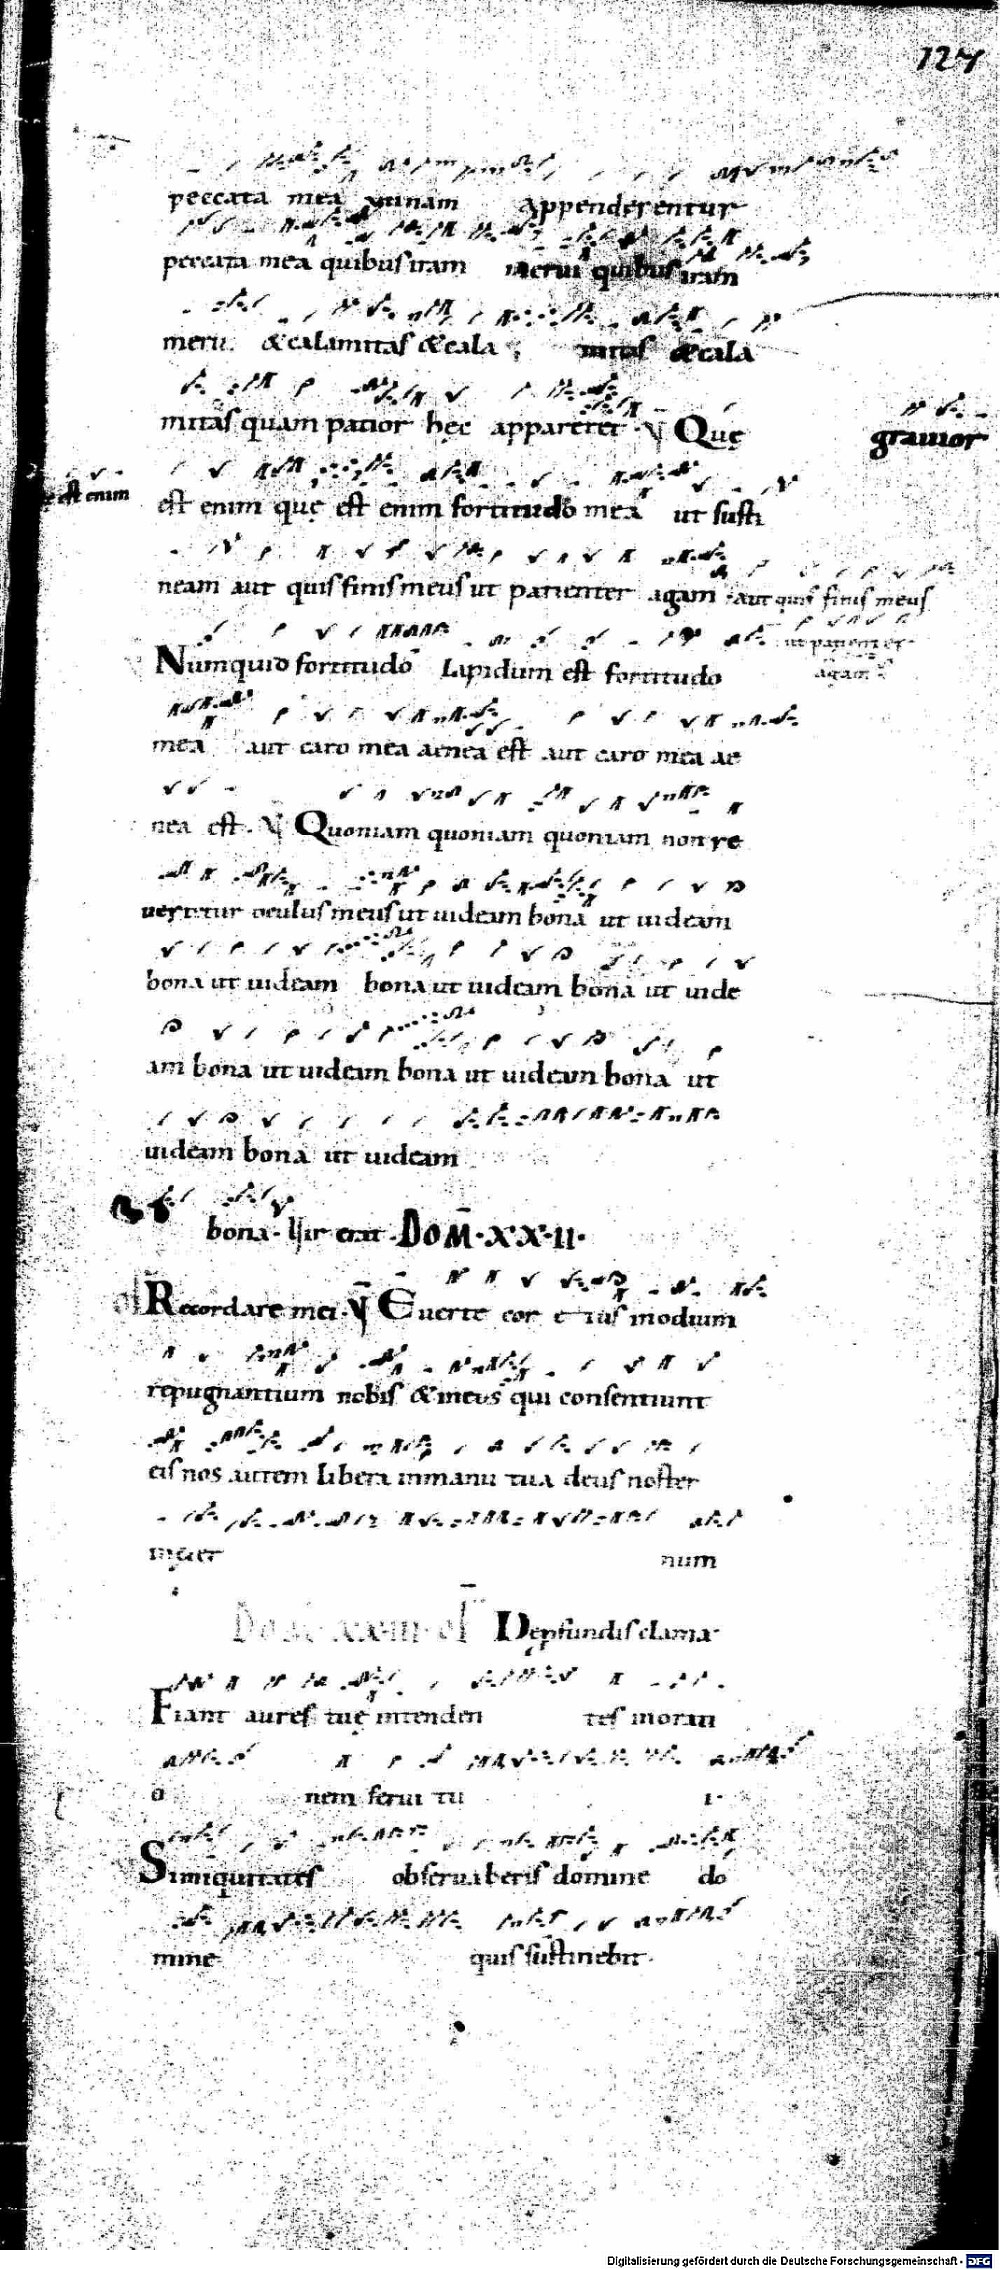 127
peccata mea utinam appenderentur
peccata mea quibus iram merui quibus iram
meru & calamitas & cala mitas & cala
mitas quam patior hęc appareret · V Quę grauior
ę est enim
est enim quę est enim fortitudo mea ut susti
neam aut quis finis meus ut patienter agam aut quis finis meus
ut patienter
agam
Numquid fortitudo Lapidum est fortitudo
mea aut caro mea aenea est aut caro mea ae
nea est · V Quoniam quoniam quoniam non re
uertetur oculus meus ut uideam bona ut uideam
bona ut uideam bona ut uideam bona ut uide
am bona ut uideam bona ut uideam bona ut
uideam bona ut uideam
bona · Uir erat · DOM · XX · II ·
of Recordare mei · V Euerte cor eius modium
repugnantium nobis & in eos qui consentiunt
eis nos autem libera in manu tua deus noster
in ęter num
Dom xx iii of De pfundis clama
Fiant aures tuę intenden tes in orati
o nem serui tu i ·
Si iniquitates obseruaberis domine do
mine quis sustinebit ·
Digitalisierung gefördert durch die Deutsche Forschungsgemeinschaft - DFG